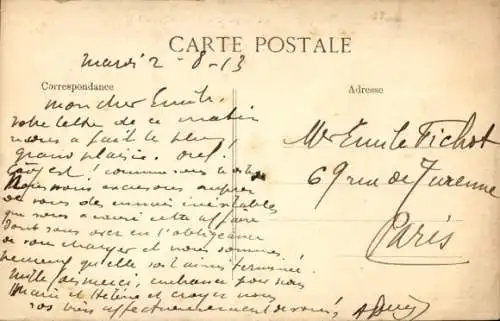 CARTE POSTALE
mardi 2-8-13
Correspondance
Adresse
mon cher Emile,
votre lettre de ce matin
nous a fait le plus
grand plaisir. ouf!
Mr Emile Fichot
69 rue de Turenne
Paris
Nous nous excusons auprès
de vous des ennuis inévitables
que vous a causé cette affaire
dont vous avez eu l'obligeance
de vous charger et nous sommes
heureux qu'elle soit ainsi terminée.
Mille fois merci, embrassez pour nous
Marie et Hélène et croyez nous
vos bien affectueusement dévoués,